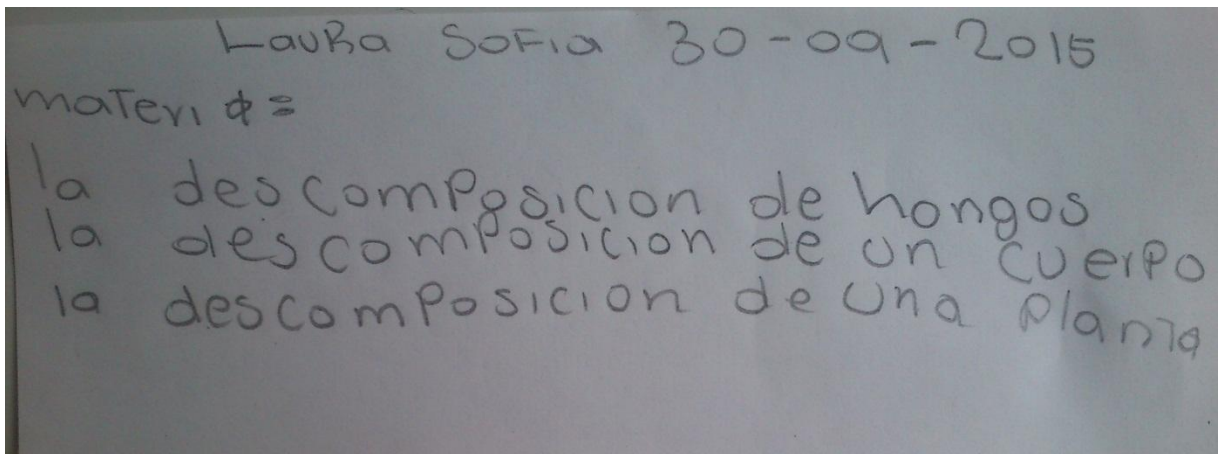 LauRa SoFia 30-09-2015
materia=
la descomposicion de hongos
la descomposicion de un cuerpo
la descomposicion de una planta